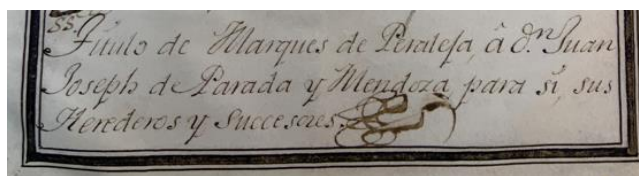 SS.
Título de Marques de Peraleja, â d.n Juan
Joseph de Parada y Mendoza para sí, sus
Herederos y Successores.